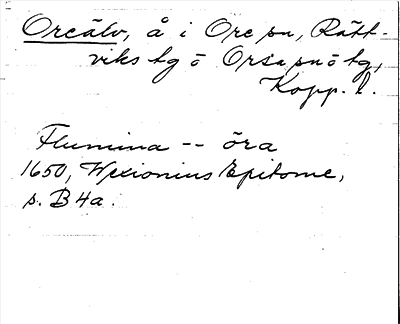 Oreälv, å i Ore sn, Rätt-
viks tg o Orsa sn o tg,
Kopp. l.
Flumina -- öra
1650, Wexionius Epitome,
s. B4a.